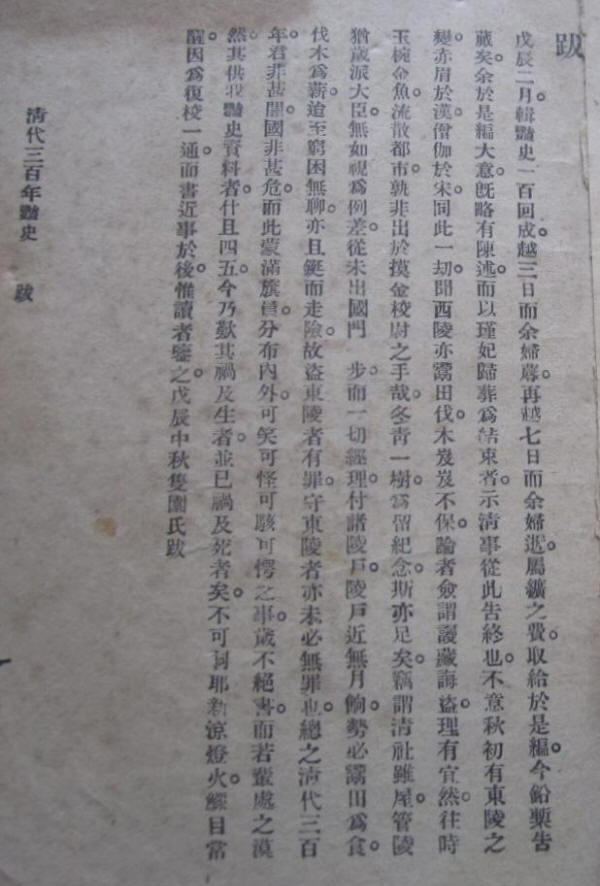 跋
戊辰二月。輯豔史一百回成。越三日而余婦蓐。再越七日而余婦逝。屬纊之費。取給於是編。今鉛槧吿
蕆矣。余於是編大意。旣略有陳述。而以瑾妃歸葬爲結束者。示淸事從此吿終也。不意秋初有東陵之
變。赤眉於漢。僧伽於宋。同此一刼。聞西陵亦鬻田伐木。岌岌不保。論者僉謂謾藏誨盜。理有宜然。往時
玉椀金魚。流散都市。孰非出於摸金校尉之手哉。冬靑一樹。爲留紀念。斯亦足矣。竊謂淸社雖屋。管陵
猶歲派大臣。無如視爲例差。從未出國門 步。而一切經理。付諸陵戶。陵戶近無月餉。勢必鬻田爲食。
伐木爲薪。迨至窮困無聊。亦且鋌而走險。故盜東陵者有罪。守東陵者亦未必無罪也。總之淸代三百
年。君非甚闇。國非甚危。而此蒙滿旗 分布內外。可笑可怪可駭可愕之事。歲不絕書。而若輩處之漠
然。其供我豔史資料者。什且四五。今乃歎其禍及生者。並已禍及死者矣。不可 耶。新涼燈火。觸目常
醒。因爲復校一通。而書近事於後。惟讀者鑒之。戊辰中秋隻園氏跋
淸代三百年豔史 跋